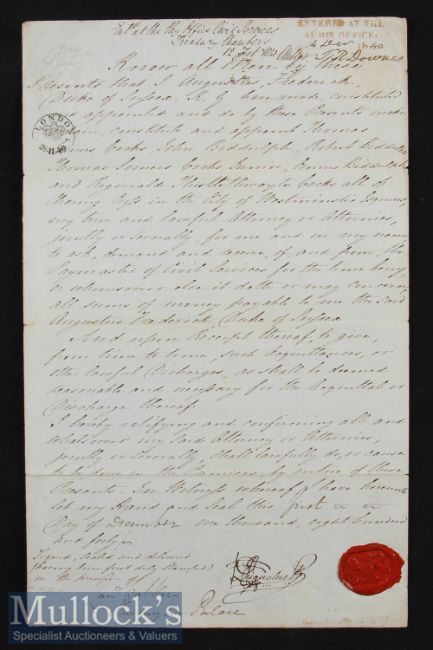 Ent.d at the Pay Office Civil Services
Treasury Chambers
ENTERED AT THE
AUDIT OFFICE.
4 Decr 1840
Know all Men by these
Presents that I Augustus Frederick
Duke of Sussex K. G. have made, constituted
appointed and do by these Presents make
constitute and appoint Thomas
Somers Cocks, John Biddulph, Robert Biddulph
Thomas Somers Cocks Junior, Ormus Biddulph
and Reginald Thistlethwayte Cocks all of
Charing Cross in the City of Westminster Esquires
my true and lawful Attorney or Attornies,
jointly or severally for me and in my name
to ask, demand and receive, of and from, the
Paymaster of Civil Services for the time being,
or whomsoever else it doth or may concern,
all sums of money payable to me the said
Augustus Frederick, Duke of Sussex
And upon Receipt thereof, to give,
from time to time, such Acquittances, or
other lawful Discharges, as shall be deemed
reasonable and necessary for the Acquittal or
Discharge thereof
I hereby ratifying and confirming all and
whatsoever my said Attorney or Attornies,
jointly or severally, shall lawfully do, or cause
to be done in the Premises, by virtue of these
Presents. In Witness whereof I have hereunto
set my Hand and Seal this first
Day of December one thousand, eight hundred
and forty
LONDON
Signed, sealed and delivered
(having been first duly stamped)
in the presence of
Augustus F
Palace
MULLOCK'S
Specialist Auctioneers & Valuers